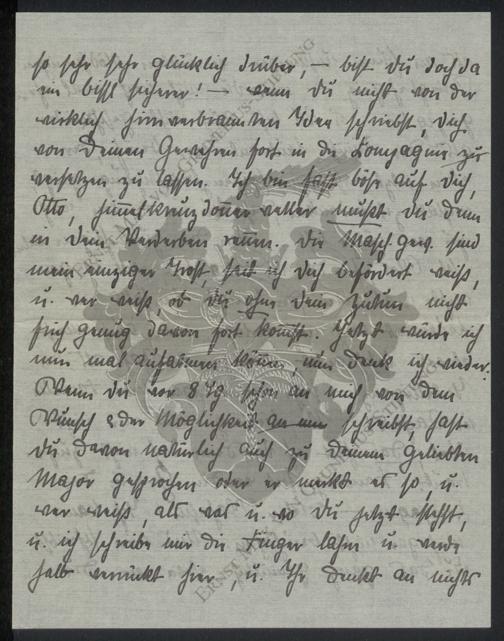 so sehr sehr glücklich drüber, – bist du doch da
ein bissl sicherer! – wenn du nicht von der
wirklich hirnverbrannten Idee schreibst, dich
von Deinen Gewehren fort in die Kompagnie zu
versetzen zu lassen. Ich bin fast böse auf dich,
Otto, himmelkreuzdonnerwetter mußt du denn
in dein Verderben rennen. Die Masch. gew. sind
mein einziger Trost, seit ich dich befördert weiß,
u. wer weiß, ob du ohne dein zutun nicht
früh genug davon fort kommst. Jetzt würde ich
nun mal aufatmen können, nun denk ich wieder.
Wenn du vor 8 Tg. schon an mich von dem
Wunsch oder Möglichkeit schreibst, hast
du davon natürlich auch zu deinem geliebten
Major gesprochen oder er merkt es so, u.
wer weiß, als was u. wo du jetzt stehst,
u. ich schreibe mir die Finger lahm u. werde
halb verrückt hier, u. Ihr denkt an nichts